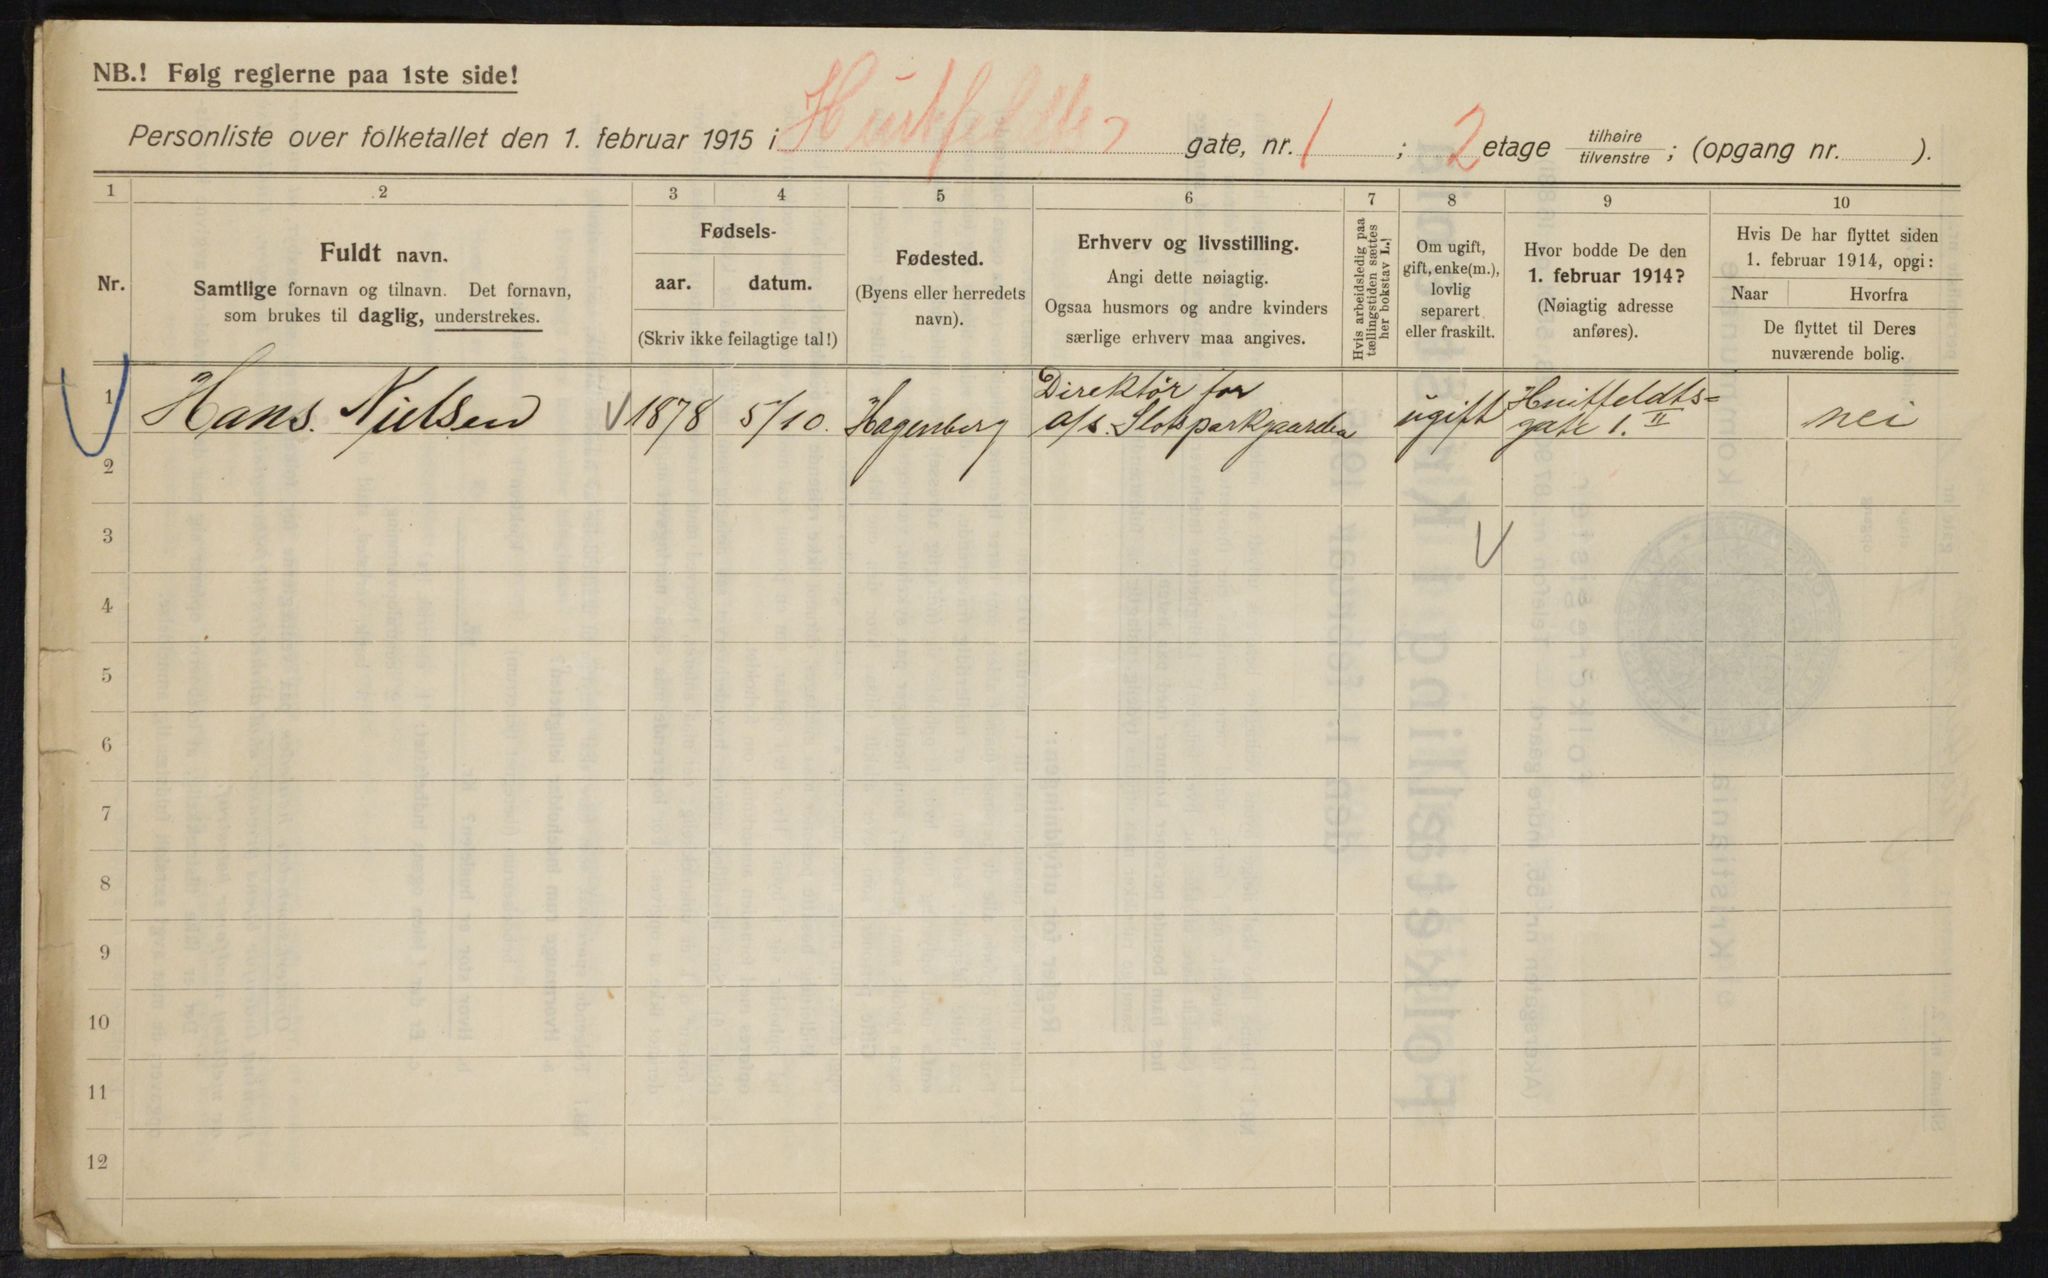 NB.! Følg reglerne paa 1ste side!
Personliste over folketallet den 1. februar 1915 i Huitfeldts gate, nr. 1 ; 2 etage tilhøire tilvenstre ; (opgang nr. ).
1 2 3 4 5 6 7 8 9 10
Nr.
Fuldt navn.
Samtlige fornavn og tilnavn. Det fornavn,
som brukes til daglig, understrekes.
Fødsels-
aar. datum.
(Skriv ikke feilagtige tal!)
Fødested.
(Byens eller herredets
navn).
Erhverv og livsstilling.
Angi dette nøiagtig.
Ogsaa husmors og andre kvinders
særlige erhverv maa angives.
Hvis arbeidsledig paa
tællingstiden sættes
her bokstav L.!
Om ugift,
gift, enke(m.),
lovlig
separert
eller fraskilt.
Hvor bodde De den
1. februar 1914?
(Nøiagtig adresse
anføres).
Hvis De har flyttet siden
1. februar 1914, opgi:
Naar Hvorfra
De flyttet til Deres
nuværende bolig.
1 Hans Nielsen 1878 5/10. Hagenberg
Direktør for
A/s. Slotsparkgaarden
ugift
Huitfeldts=
gate 1. II
nei
2
3
4
5
6
7
8
9
10
11
12